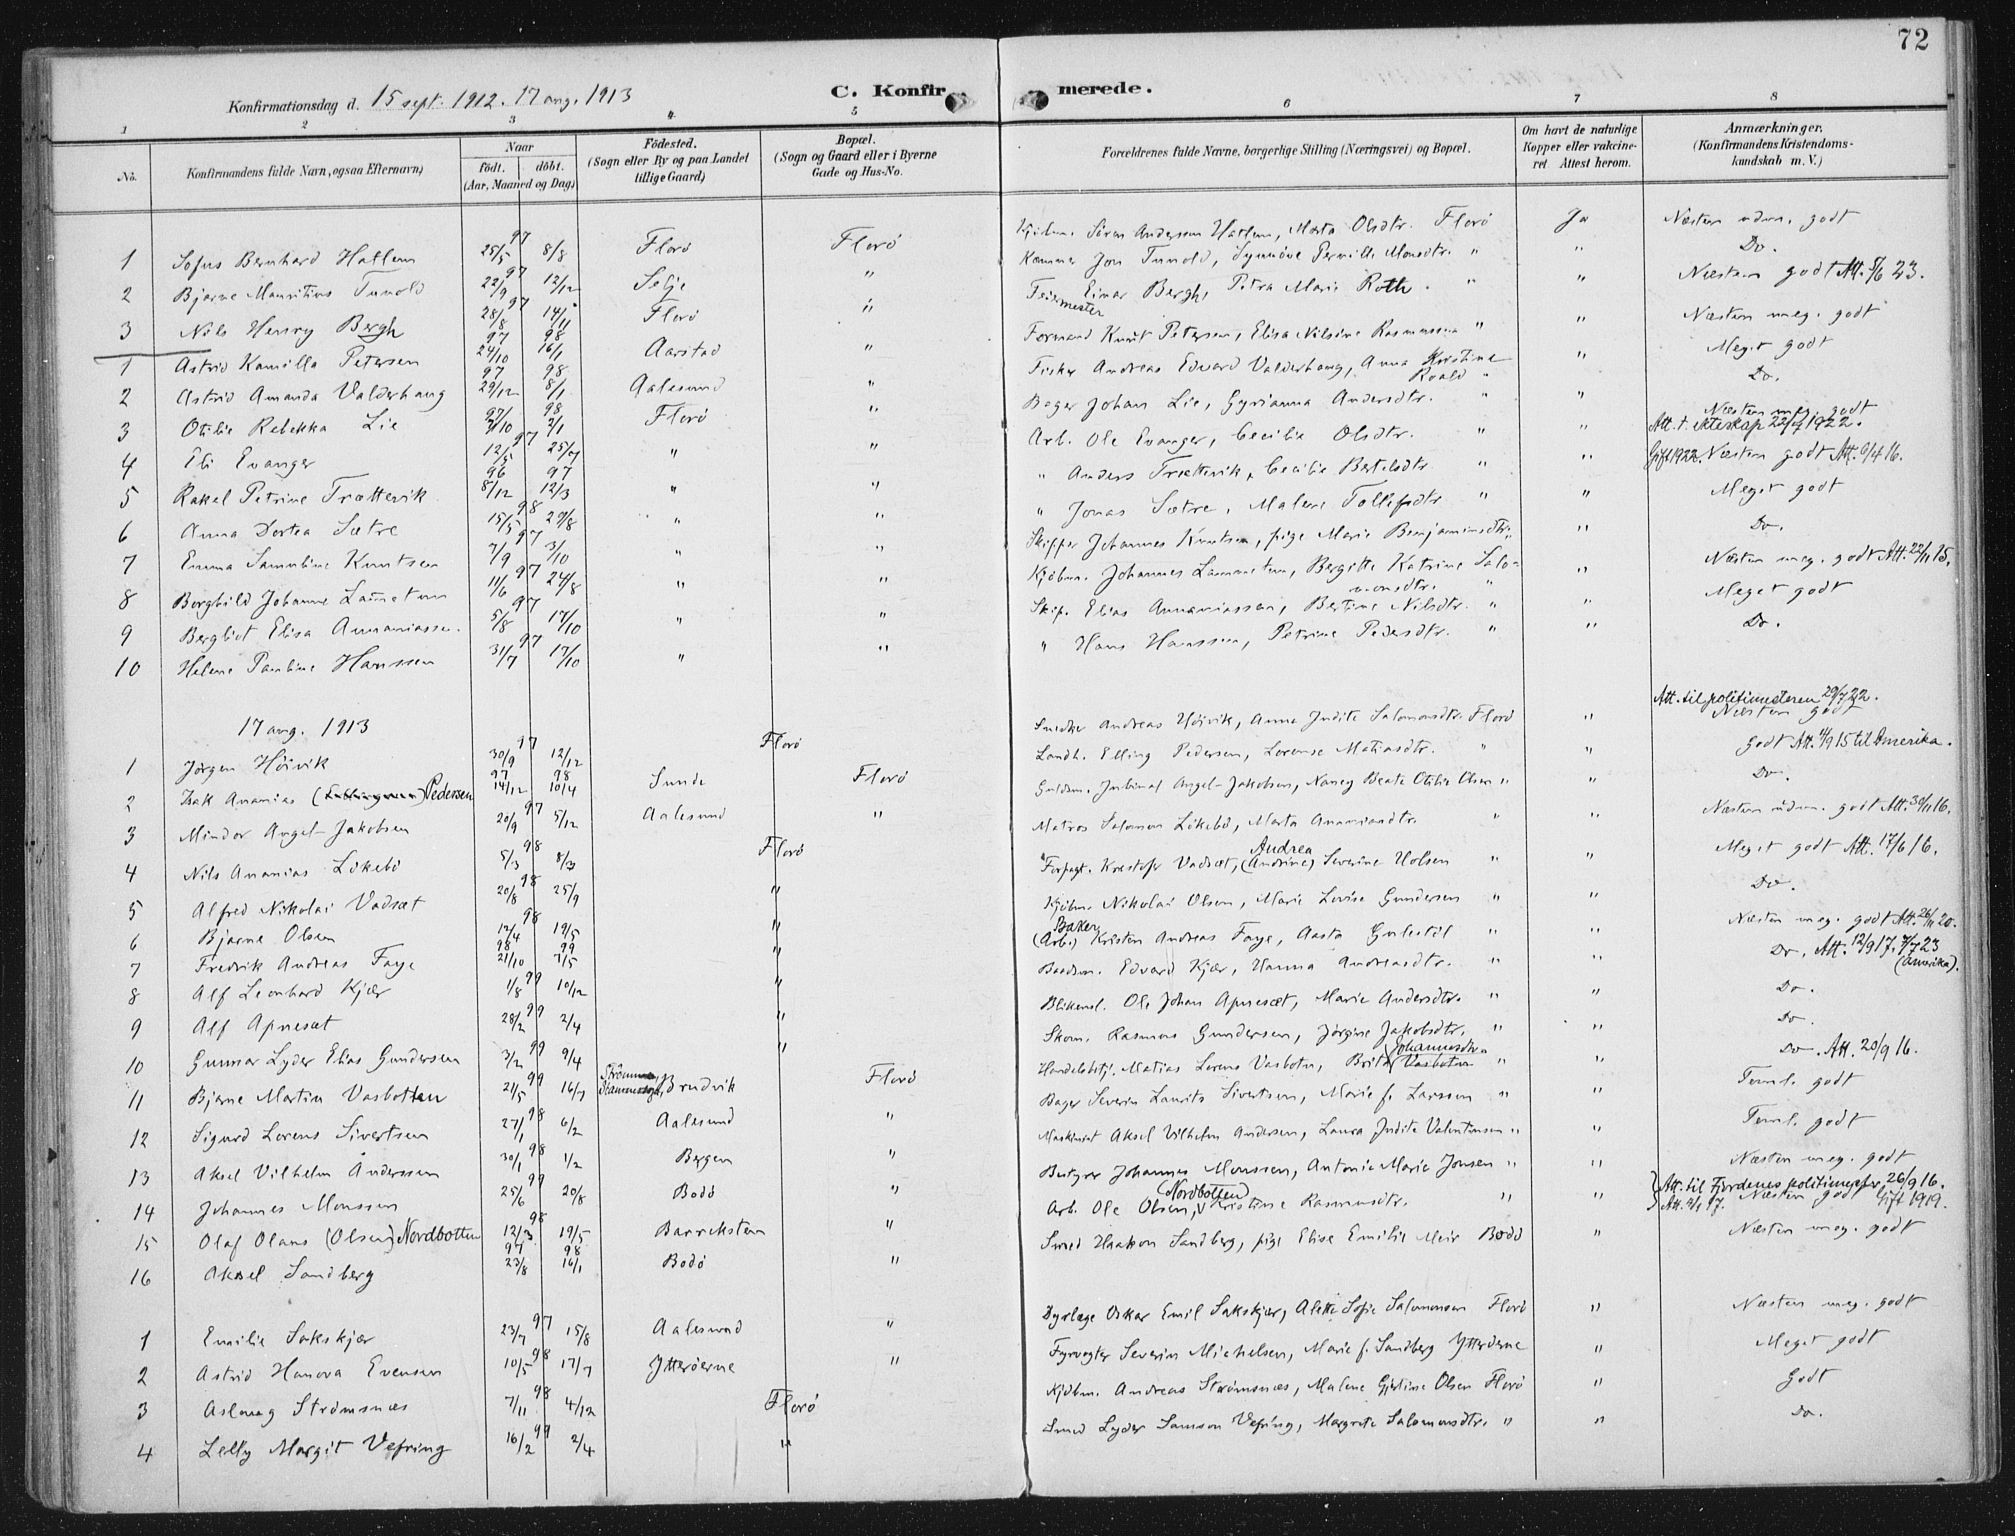 72
Konfirmationsdag d. 15 sept. 1912. 17 aug. 1913 C. Konfirmerede.
1 2 3 4 5 6 7 8
No. Konfirmandens fulde Navn, ogsaa Efternavn) Naar Födt. döbt. (Aar, Maaned og Dag) Födested. (Sogn eller By og paa Landet tillige Gaard) Bopæl. (Sogn og Gaard eller i Byerne Gade og Hus-No. Forældrenes fulde Navne, borgerlige Stilling (Næringsvei) og Bopæl. Om havt de naturlige Kopper eller vakcineret. Attest herom. Anmærkninger. (Konfirmandens Kristendomskundskab m. V.)
1 Sofus Bernhard Hatlem 25/5 97 8/8 Florö Florö Kjöbm. Sören Andersen Hatlem, Marta Olsdtr. Florö Ja Næsten udm. godt
2 Bjarne Mauritius Tunold 22/9 97 12/12 Selje " Kæmner Jon Tunold, Synnöve Pernille Monsdtr. " " Do.
3 Nils Henry Bergh 28/8 97 14/11 Florö " Feiermester Einar Bergh, Petra Marie Roth. " " Næsten godt Att. 5/6 23.
1 Astrid Kamilla Petersen 24/10 97 16/1 98 Aarstad " Formand Knut Petersen, Elisa Nilsine Rasmussen " " Næsten meg. godt
2 Astrid Amanda Valderhaug 29/12 97 8/1 98 Aalesund " Fisker Andreas Edvard Valderhaug, Anna Kristine Roald " " Meget godt
3 Otilie Rebekka Lie 97 98 2/1 Florö " Bager Johan Lie, Gyrianna Andersdtr. " " Do.
4 Eli Evanger 12/5 97 25/7 " " Arb. Ole Evanger, Cecilie Olsdtr. " " Næsten meg. godt Att. t. ekteskap 22/7 1922.
5 Rakel Petrine Trættevik 8/12 96 12/3 97 " " " Anders Trættevik, Cecilie Bertelsdtr " " Gift 1922. Næsten godt Att. 6/4 16.
6 Anna Dortea Sætre 15/5 98 29/8 " " " Jonas Sætre, Malene Tollefsdtr " " Meget godt
7 Emma Samuline Knutsen 7/9 97 3/10 " " Skipper Johannes Knutsen, pige Marie Benjaminsdtr. " Do.
8 Borghild Johanne Lammetun 11/6 97 24/8 " " Kjöbm. Johannes Lammetun, Bergitte Katrine Salomonsdtr. " " Næsten meg. godt Att. 22/11 15.
9 Bergliot Elisa Ananiassen. 5/8 97 17/10 " " Skip. Elias Ananiassen, Bertine Nilsdtr. " " Meget godt
10 Helene Pauline Hanssen 31/7 97 17/10 " " " Hans Hanssen, Petrine Pedersdtr. " " Do.
17 aug. 1913
1 Jörgen Höivik 30/9 97 12/12 Florö Snedker Andreas Höivik, Anna Judite Salomonsdtr. Florö " Att. til politimesteren 29/7 22. Næsten godt
2 Isak Ananias Pedersen 14/12 97 10/4 98 Sunde Florö Landh. Elling Pedersen, Lorense Matiasdtr. " " Godt Att. 4/9 15 til Amerika.
3 Mindor Angel-Jakobsen 20/9 97 5/12 Aalesund " Guldsm. Angel-Jakobsen, Nancy Beate Otilie Olsen " " Do.
4 Nils Ananias Lökebö 5/3 98 8/3 Florö Matros Salomon Lökebö, Marta Ananiasdtr. " " Næsten udm. godt Att. 30/11 16.
5 Alfred Nikolai Vadsæt 20/8 98 25/9 " Forpagt. Kristofer Vadsæt, Andrea (Andrine) Severine Holsen " " Meget godt Att. 17/6 16.
6 Bjarne Olsen 12/4 98 19/5 " Kjöbm. Nikolai Olsen, Marie Lovise Gundersen " " Do.
7 Fredrik Andreas Faye 21/10 98 7/5 99 " Baker (Arb.) Kristen Andreas Faye, Aasta Gulestöl " " Næsten meg. godt Att. 26/11 20.
8 Alf Leonhard Kjær 1/8 99 10/12 " Baadsm. Edvard Kjær, Hanna Andreasdtr. " " Do. Att. 12/9 17. 7/7 23 (Amerika).
9 Alf Apnesæt 28/2 99 2/4 " Blikensl. Ole Johan Apnesæt, Marie Andersdtr. " " Do.
10 Gunnar Lyder Elias Gundersen 3/2 99 9/4 " Skom. Rasmus Gundersen, Jörgine Jakobsdtr. " " Do.
11 Bjarne Martin Vasbotten 21/5 99 16/7 Brudvik Florö Handelsbetj. Matias Lorens Vasbotn, Brita Johannesdtr. Vasbotn " " Do. Att. 20/9 16.
12 Sigurd Lorens Sivertsen 27/1 98 6/2 Aalesund " Bager Severin Laurits Sivertsen, Marie f. Larsson " " Teml. godt
13 Aksel Vilhelm Anderssen 30/1 98 1/2 Bergen " Maskinist Aksel Vilhelm Andersen, Laura Judite Valentinsen " " Teml. godt
14 Johannes Monssen 25/6 99 20/8 Bodö " Bestyrer Johannes Monssen, Antonie Marie Jonsen " " Næsten meg. godt
15 Olaf Olaus (Olsen) Nordbotten 12/3 98 19/5 Barreksten " Arb. Ole Olsen (Nordbotten), Kristine Rasmusdtr. " " Att. til Fjordenes politimester 26/9 16. Næsten godt Gift 1919.
16 Aksel Sandberg 23/8 97 16/1 98 Bodö " Smed Haakon Sandberg, pige Elise Emilie Meir Bodö " Næsten meg. godt
1 Emilie Sakskjær 23/7 97 15/8 Aalesund " Dyrlæge Oskar Emil Sakskjær, Alette Sofie Salomonsen Florö " Næsten meg. godt
2 Astrid Hanova Evensen 10/5 98 17/7 Ytteröerne " Fyrvogter Severin Michelsen, Marie f. Sandberg Ytteröerne " Meget godt
3 Aslaug Strömsnæs 7/11 98 4/12 Florö Kjöbm. Andreas Strömsnæs, Malene Gjertine Olsen Florö " Godt
4 Lelly Margit Vefring 16/2 99 2/4 " Smed Lyder Samson Vefring, Margrete Salomonsdtr. " " Do.